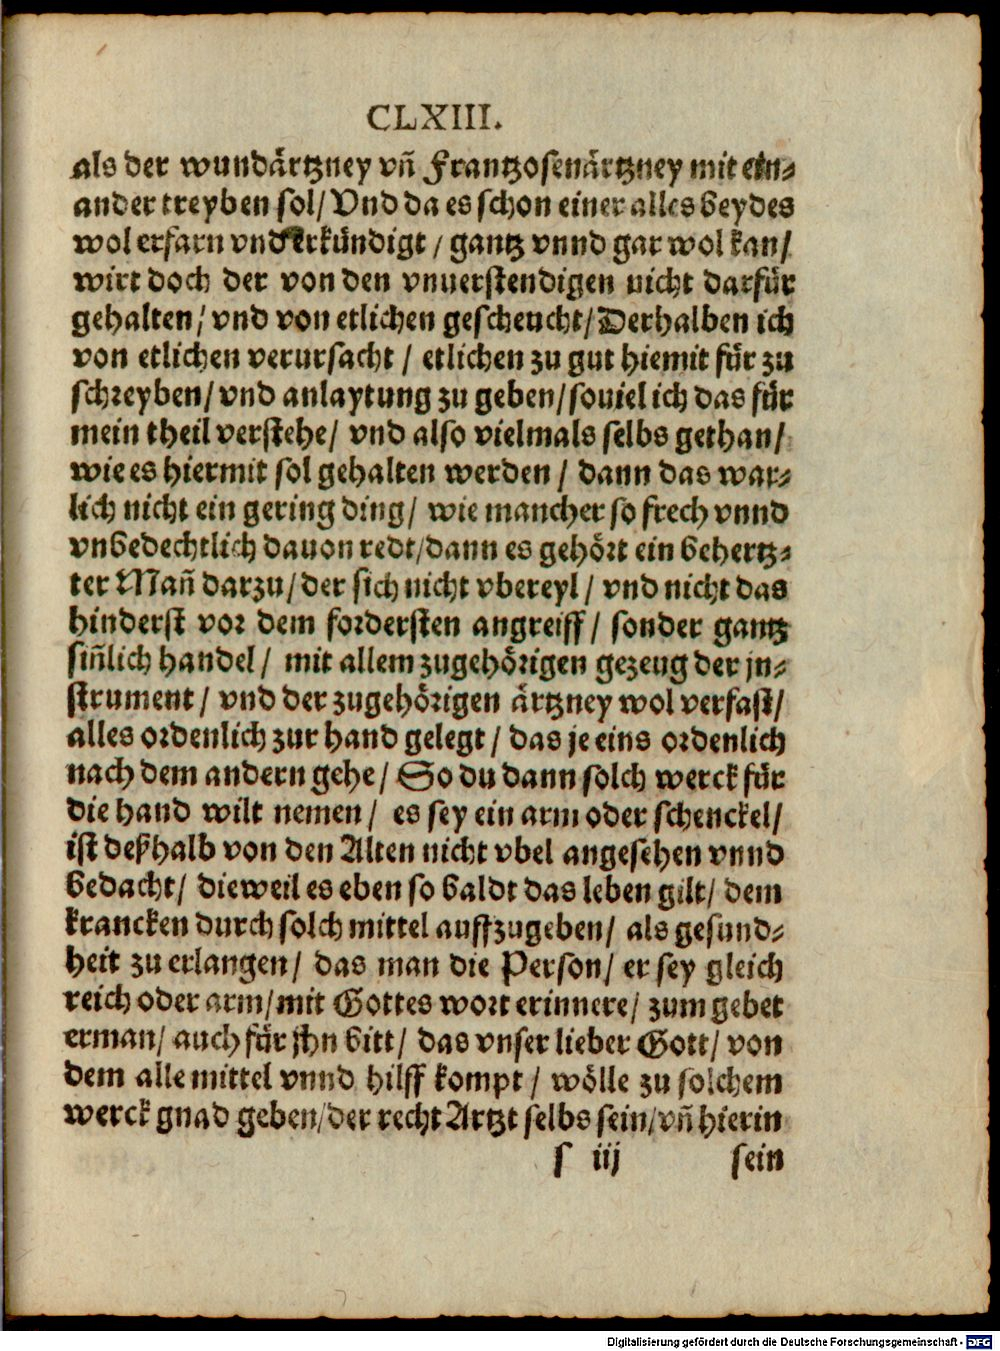 CLXIII.
als der wundärtzney vñ Frantzosenärtzney mit ein⸗
ander treyben sol/ Vnd da es schon einer alles beydes
wol erfarn vnd erkündigt / gantz vnnd gar wol kan/
wirt doch der von den vnuerstendigen nicht darfür
gehalten/ vnd von etlichen gescheucht/ Derhalben ich
von etlichen verursacht / etlichen zu gut hiemit für zu
schreyben/ vnd anlaytung zu geben/ souiel ich das für
mein theil verstehe/ vnd also vielmals selbs gethan/
wie es hiermit sol gehalten werden / dann das war⸗
lich nicht ein gering ding/ wie mancher so frech vnnd
vnbedechtlich dauon redt/ dann es gehört ein behertz⸗
ter Mañ darzu/ der sich nicht vbereyl / vnd nicht das
hinderst vor dem fordersten angreiff/ sonder gantz
siñlich handel/ mit allem zugehörigen gezeug der jn⸗
strument / vnd der zugehörigen ärtzney wol verfast/
alles ordenlich zur hand gelegt / das je eins ordenlich
nach dem andern gehe/ So du dann solch werck für
die hand wilt nemen/ es sey ein arm oder schenckel/
ist deßhalb von den Alten nicht vbel angesehen vnnd
bedacht/ dieweil es eben so baldt das leben gilt/ dem
krancken durch solch mittel auffzugeben/ als gesund⸗
heit zu erlangen/ das man die Person/ er sey gleich
reich oder arm/ mit Gottes wort erinnere/ zum gebet
erman/ auch für jhn bitt/ das vnser lieber Gott/ von
dem alle mittel vnnd hilff kompt / wölle zu solchem
werck gnad geben/ der recht Artzt selbs sein/ vñ hierin
s iij sein
Digitalisierung gefördert durch die Deutsche Forschungsgemeinschaft - DFG